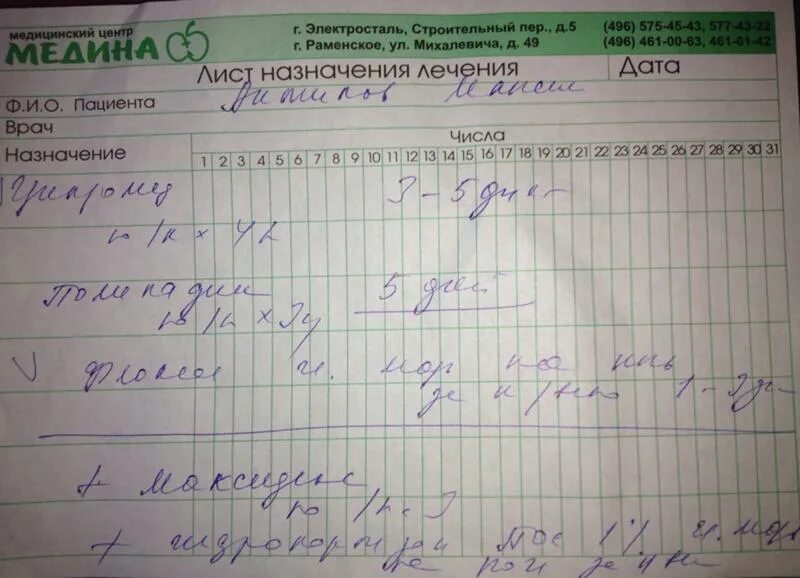 медицинский центр
МЕДИНА
г. Электросталь, Строительный пер., д.5 (496) 575-45-43, 577-43-22
г. Раменское, ул. Михалевича, д. 49 (496) 461-00-63, 461-61-42
Лист назначения лечения Дата
Ф.И.О. Пациента
Врач
Назначение Числа
1 2 3 4 5 6 7 8 9 10 11 12 13 14 15 16 17 18 19 20 21 22 23 24 25 26 27 28 29 30 31
Ципромед 3-5 дней
по /к х 4
Полинадим 5 дней
по /к х 3
мар на
за н/веко 1-3
+ максидекс
по /к. 3
+ гидрокортизон 1% мазь
за